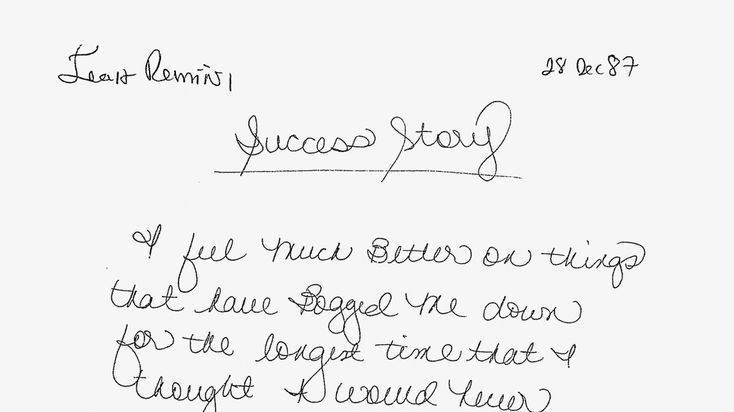 Leah Remini
28 Dec 87
Success Story
I feel much Better on things
that have Bogged me down
for the longest time that I
thought I would never